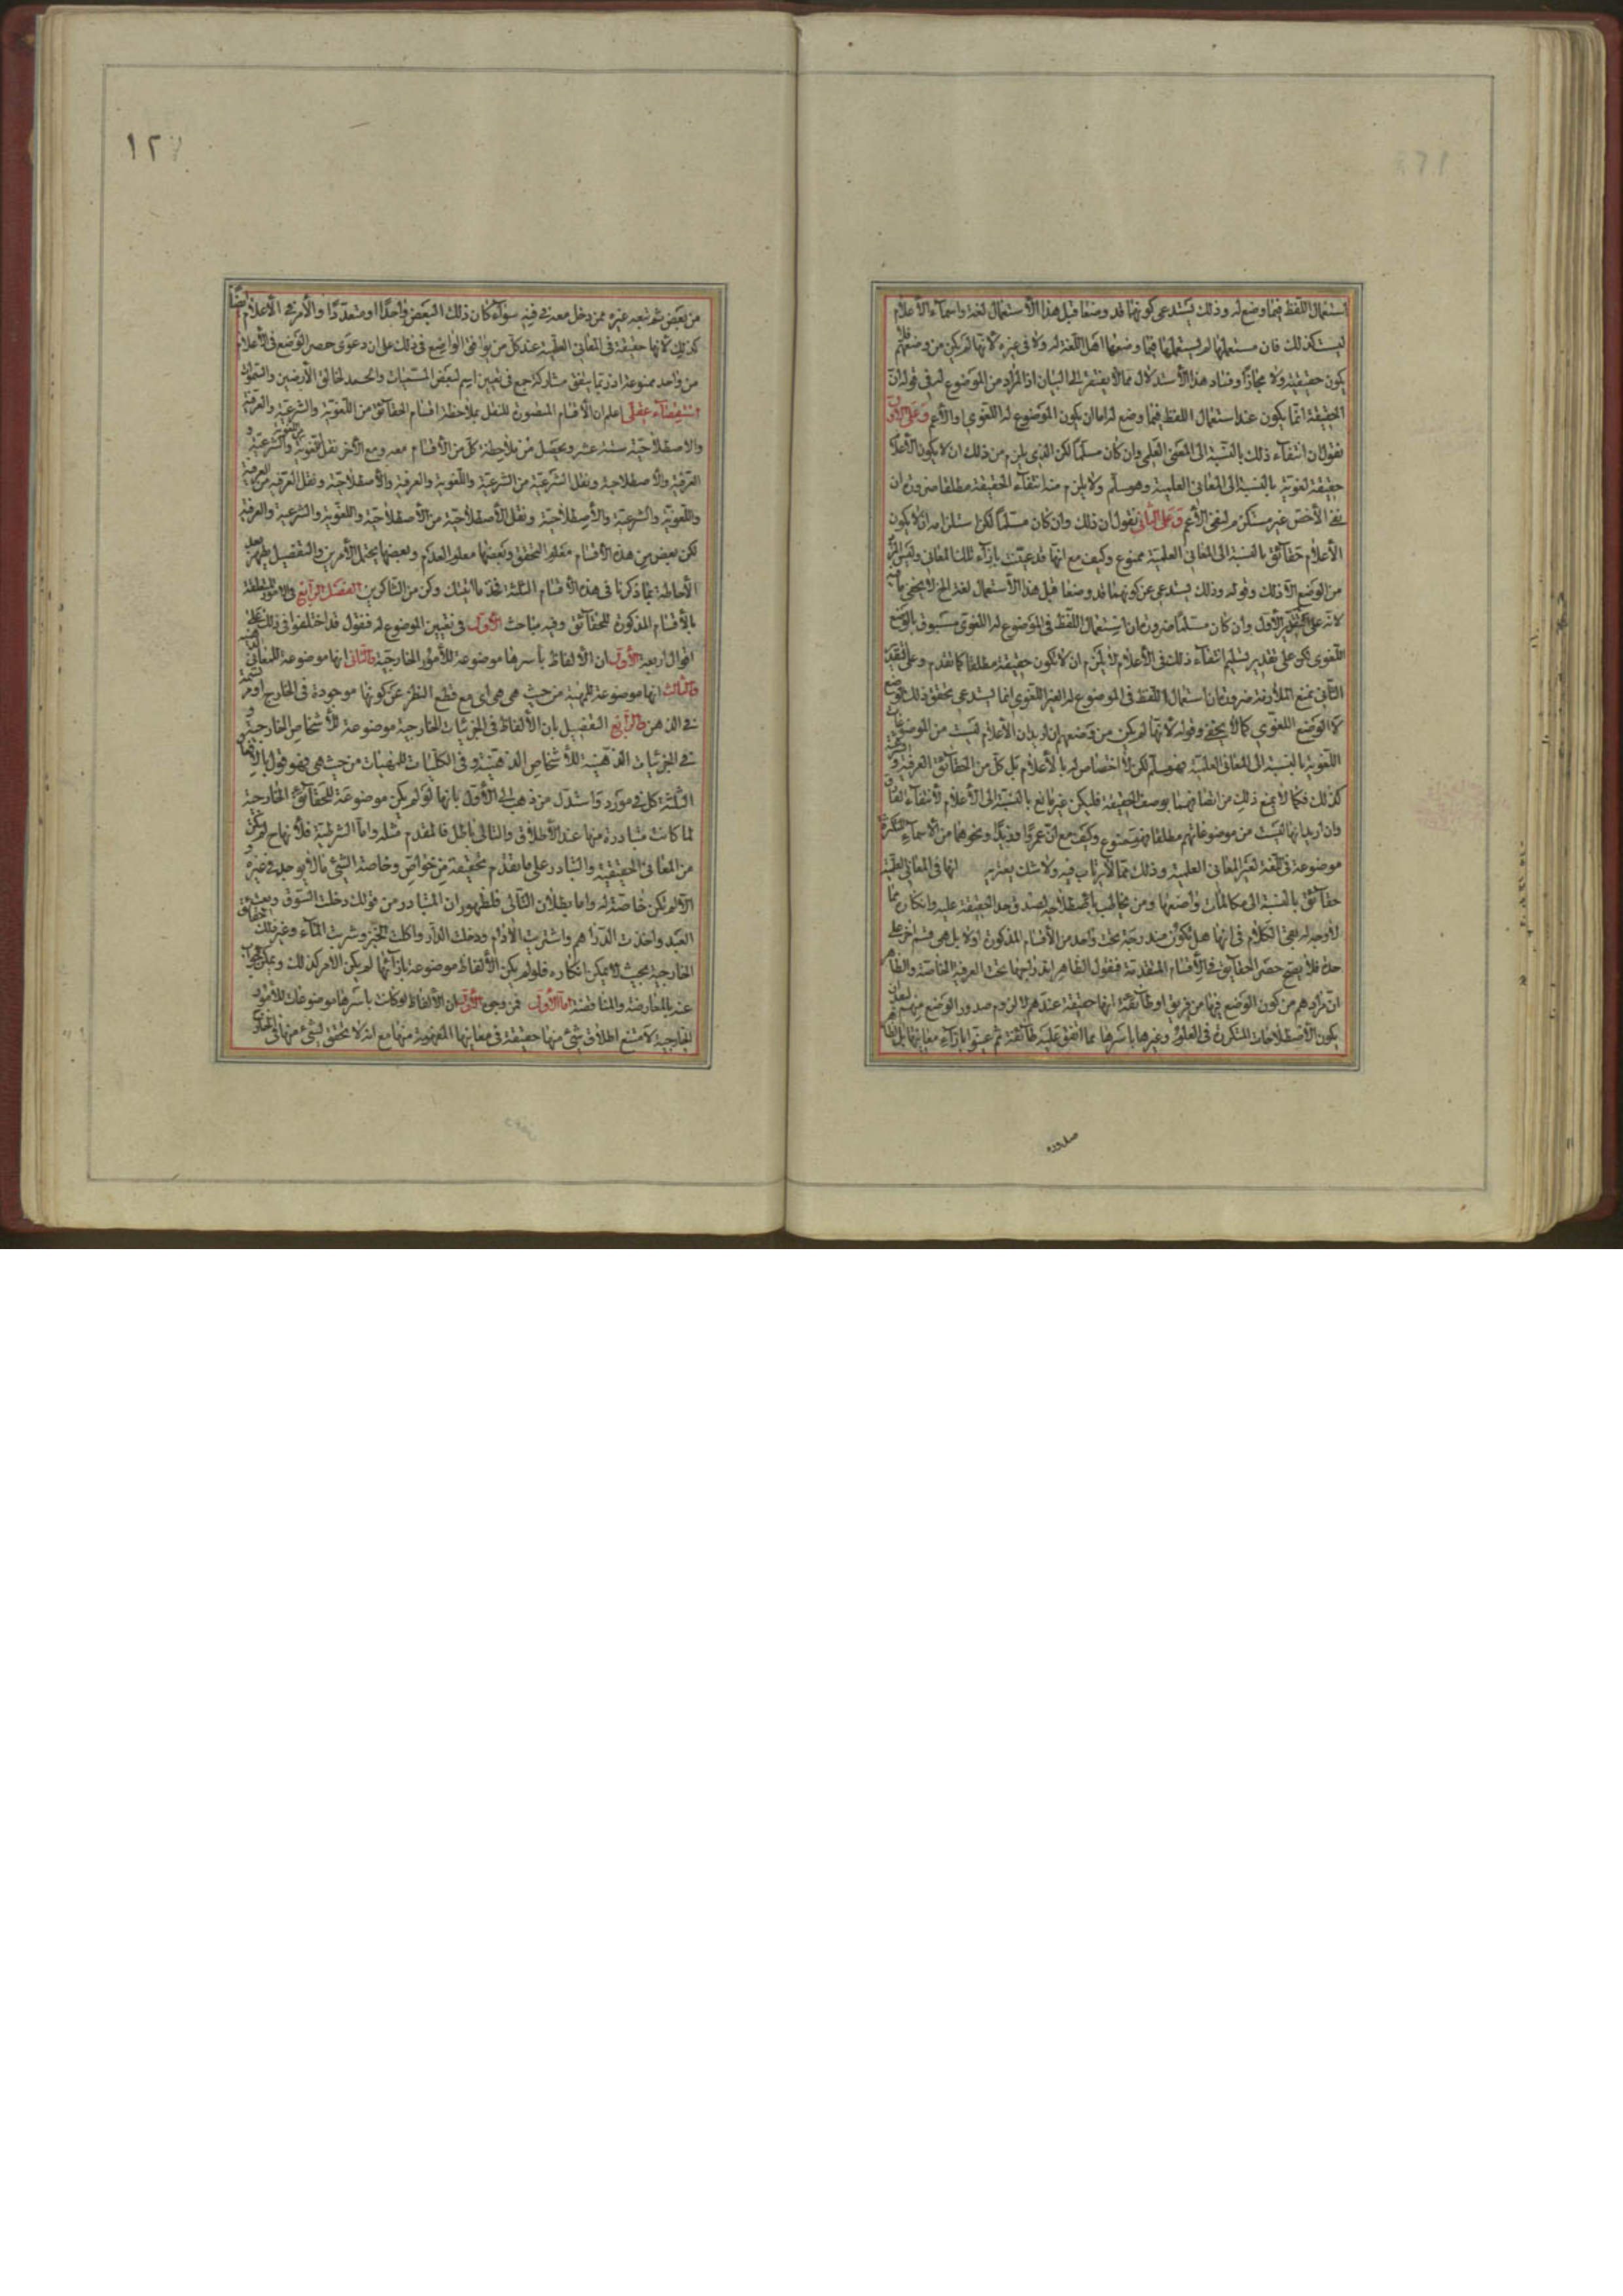 استعمال اللفظ فيما وضع له وذلك يستدعى كونهما قد وضعا قبل هذا الاستعمال لغة واسماء الأعلام
ليست كذلك فان مستعملها لم يستعملها فيما وضعها اهل اللغة له ولا فى غيره لانها لم يكن من وضعهم فلا
يكون حقيقة ولا مجازا وفساد هذا الاستدلال مما لا يفتقر الى البيان اذ المراد من الموضوع له فى قوله ان
الحقيقة انما يكون عند استعمال اللفظ فيما وضع له اما ان يكون الموضوع له اللغوي او الأعم وعلى الأول
نقول ان انتفاء ذلك بالنسبة الى المعنى العلمى وان كان مسلما لكن الذى يلزم من ذلك ان لا يكون الأعلام
حقيقة لغوية بالنسبة الى المعانى العلمية وهو مسلم ولا يلزم منه انتفاء الحقيقة مطلقا ضرورة ان
نفى الأخص غير مستلزم لنفى الأعم وعلى الثانى نقول ان ذلك وان كان مسلما لكن استلزامه ان لا يكون
الأعلام حقائق بالنسبة الى المعانى العلمية ممنوع وكيف مع انها قد عينت بازاء تلك المعانى وليس المراد
من الوضع الا ذلك وقوله وذلك يستدعى عن كونهما قد وضعا قبل هذا الاستعمال لغة الخ لا يخفى ما فيه
لانه على التقدير الأول وان كان مسلما ضرورة ان استعمال اللفظ فى الموضوع له اللغوى مسبوق بالوضع
اللغوى لكن على تقدير تسليم انتفاء ذلك فى الأعلام لا يلزم ان لا يكون حقيقة مطلقا كما تقدم وعلى التقدير
الثانى بمنع الملازمة ضرورة ان استعمال اللفظ فى الموضوع له الغير اللغوى انما يستدعى تحقق ذلك الوضع
لا الوضع اللغوي كما لا يخفى وقوله لانها لم يكن من وضعهم ان اريد ان الأعلام ليست من الموضوعات
اللغوية بالنسبة الى المعانى العلمية فهو مسلم لكن لا اختصاص له بالأعلام بل كل من الحقائق العرفية والشرعية
كذلك فكما لا يمنع ذلك من اتصافهما بوصف الحقيقة فليكن غير مانع بالنسبة الى الأعلام لانتفاء الفارق
وان اريد انها ليست من موضوعاتهم مطلقا فهو ممنوع وكيف مع ان عمروا وزيدا ونحوهما من الاسماء المنكرة
موضوعة فى اللغة لغير المعانى العلمية وذلك مما لا يرتاب فيه ولا شك يعتريه انها فى المعانى العلمية
حقائق بالنسبة الى مكالمات واضعها ومن يخاطب باصطلاحه لصدق حد الحقيقة عليه وانكاره مما
لا وجه له لبقى الكلام فى انها هل تكون مندرجة تحت واحد من الأقسام المذكورة او لا بل هى قسم اخر على
حدة فلا يصح حصر الحقائق فى الأقسام المتقدمة فنقول الظاهر اندراجها تحت العرفية الخاصة والظاهر
ان مرادهم من كون الوضع فيها من فريق او طائفة انها حقيقة عندهم لا لزوم صدور الوضع منهم لبعد ان
يكون الأصطلاحات المتكررة فى العلوم وغيرها باسرها مما اتفق عليه طائفة ثم عينوا بازاء معانيها بل الظاهر
صدوره
١٢٧
من بعض ثم تبعه غيره ممن دخل معه فيه سواء كان ذلك البعض واحدا او متعددا والأمر فى الأعلام ايضا
كذلك لانها حقيقة فى المعانى العلمية عند كل من يوافق الواضع فى ذلك على ان دعوى حصر الوضع فى الأعلام
من واحد ممنوعة اذ ربما يتفق مشاركة جمع فى تعيين اسم لبعض المسميات والحمد لخالق الأرضين والسموات
استقصاء عقلى اعلم ان الأقسام المتصورة للنقل بملاحظة اقسام الحقائق من اللغوية والشرعية والعرفية
والاصطلاحية ستة عشر ويحصل من ملاحظة كل من الأقسام معه ومع الأخر نقل اللغوية من اللغوية والشرعية و
العرفية والأصطلاحية ونقل الشرعية من الشرعية واللغوية والعرفية والأصطلاحية ونقل العرفية من العرفية
واللغوية والشرعية والأصطلاحية ونقل الأصطلاحية من الأصطلاحية واللغوية والشرعية والعرفية
لكن بعض من هذه الأقسام معلوم التحقق وبعضها معلوم العدم وبعضها يحتمل الأمرين والتفصيل يظهر بعد
الأحاطة بما ذكرنا فى هذه الأقسام الثلثة فخذ ما اتيتك وكن من الشاكرين الفصل الرابع فى الامور المتعلقة
بالأقسام المذكورة للحقائق وفيه مباحث الأول فى تعيين الموضوع له فنقول قد اختلفوا فى ذلك على
اقوال اربعة الأول ان الألفاظ بأسرها موضوعة للأمور الخارجية والثانى انها موضوعة للمعانى الذهنية
والثالث انها موضوعة للمهية من حيث هى هى اى مع قطع النظر عن كونها موجودة فى الخارج او مرتسمة
فى الذهن والرابع التفصيل بان الألفاظ فى الجزئيات الخارجية موضوعة للأشخاص الخارجية و
فى الجزئيات الذهنية للأشخاص الذهنية وفى الكليات للمهيات من حيث هى فهو قول بالأقوال
الثلثة كل فى مورد واستدل من ذهب الى الأول بانها لو لم يكن موضوعة للحقائق الخارجية
لما كانت متبادرة منها عند الأطلاق والتالى باطل فالمقدم مثله واما الشرطية فلأنها ح لم يكن
من المعانى الحقيقية والتبادر على ما تقدم تحقيقه من خواص وخاصة الشئ ما لا يوجد فى غيره و
الا لم يكن خاصة له واما بطلان التالى فلظهور ان المتبادر من قولك دخلت السوق وبعت
العبد واخذت الدراهم واشتريت الأدام ودخلت الدار واكلت الخبز وشربت الماء وغير ذلك حقائق
الخارجية بحيث لا يمكن انكاره فلو لم يكن الألفاظ موضوعة بازائها لم يكن الامر كذلك ويمكن الجواب
عنه بالمعارضة والمناقضة اما الأول فمن وجوه الأول ان الألفاظ لو كانت باسرها موضوعات للأمور
الخارجية لامتنع اطلاق شئ منها حقيقة فى معانيها المفهومة منها مع انه لا تحقق لشئ منها فى الخارج